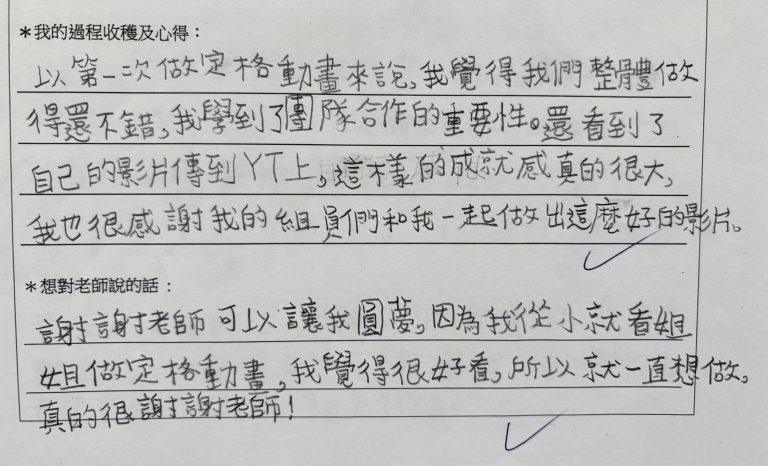 ＊我的過程收穫及心得：
以第一次做定格動畫來說，我覺得我們整體做
得還不錯，我學到了團隊合作的重要性。還看到了
自己的影片傳到YT上，這樣的成就感真的很大，
我也很感謝我的組員們和我一起做出這麼好的影片。
＊想對老師說的話：
謝謝老師可以讓我圓夢，因為我從小就看姐
姐做定格動畫，我覺得很好看，所以就一直想做。
真的很謝謝老師！